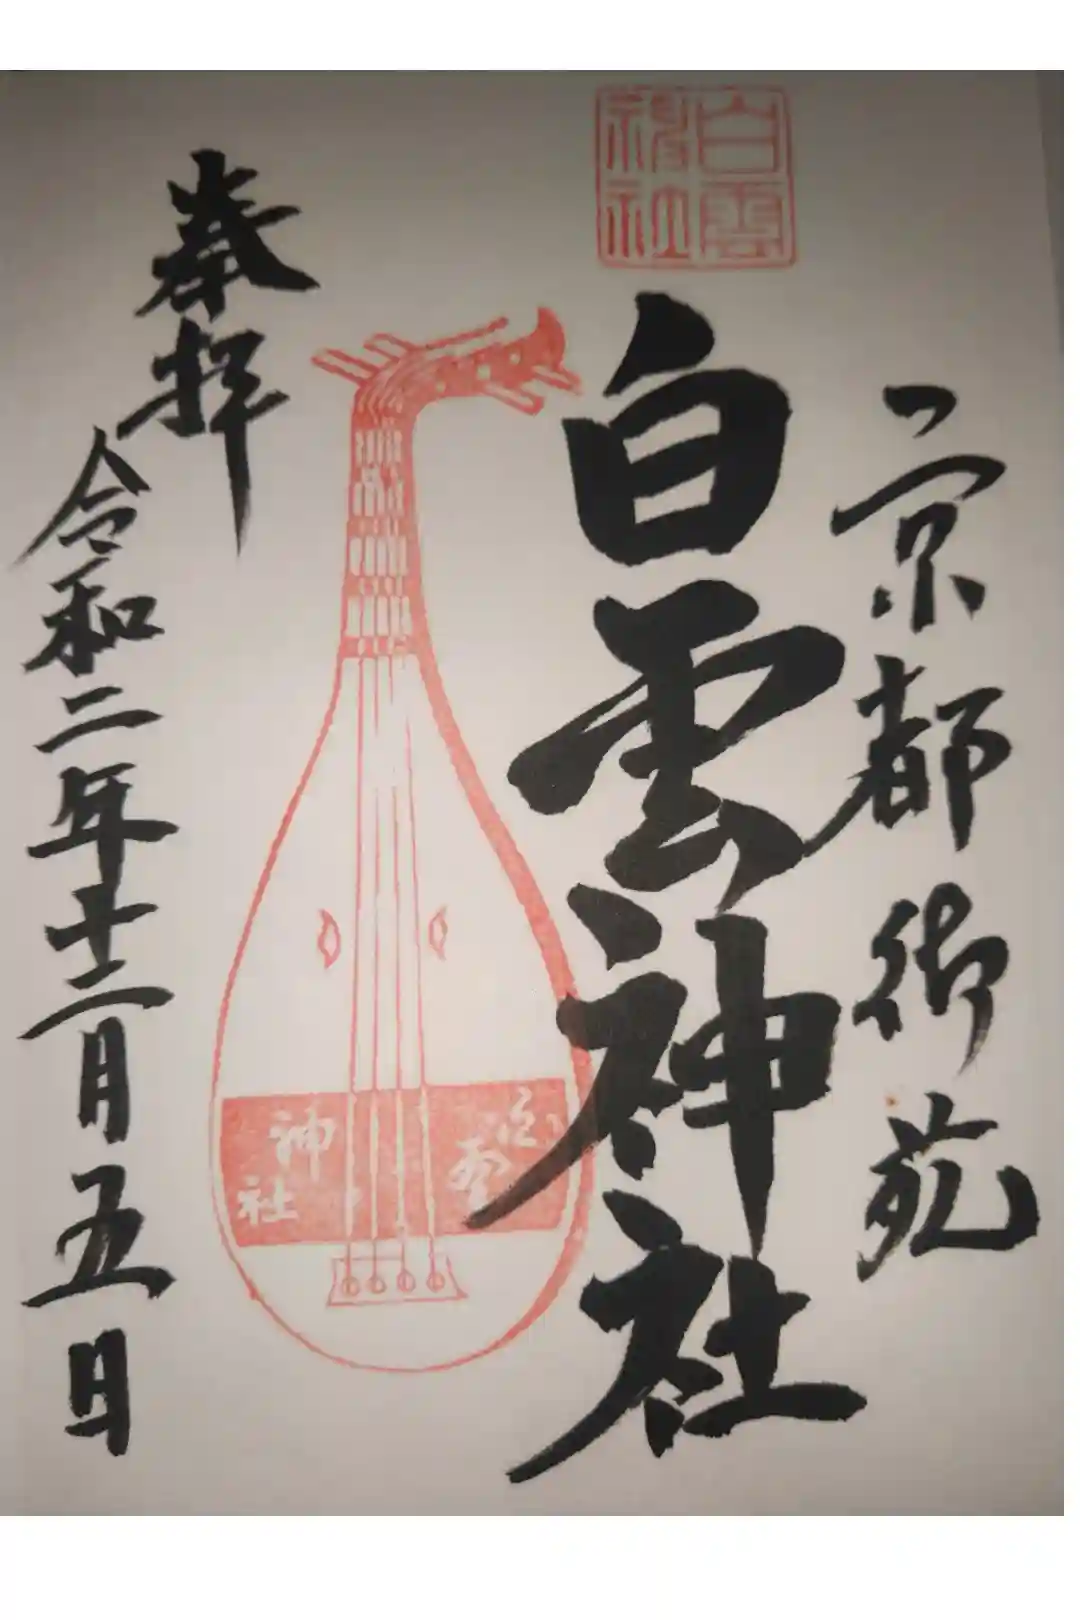 京都御苑
白雲
神社
白雲神社
白雲
神社
奉拝
令和二年十二月五日